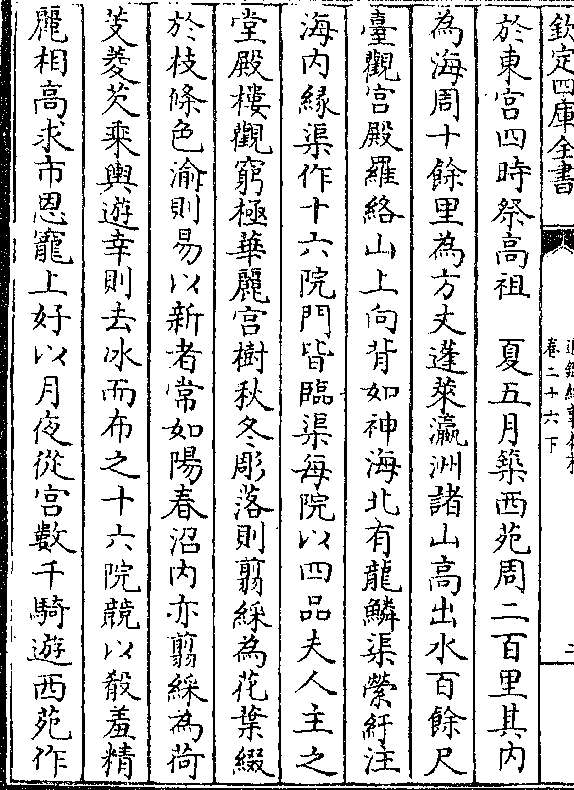 欽定四庫全書
卷二十六下
於東宮四時祭高祖　夏五月築西苑周二百里其内
為海周十餘里為方丈蓬萊瀛洲諸山高出水百餘尺
臺觀宫殿羅絡山上向背如神海北有龍鱗渠縈紆注
海内緣渠作十六院門皆臨渠每院以四品夫人主之
堂殿樓觀窮極華麗宫樹秋冬彫落則翦綵為花葉綴
於枝條色渝則易以新者常如陽春沼内亦翦綵為荷
芰菱芡乘輿遊幸則去冰而布之十六院競以殽羞精
麗相高求市恩寵上好以月夜從宫數千騎遊西苑作